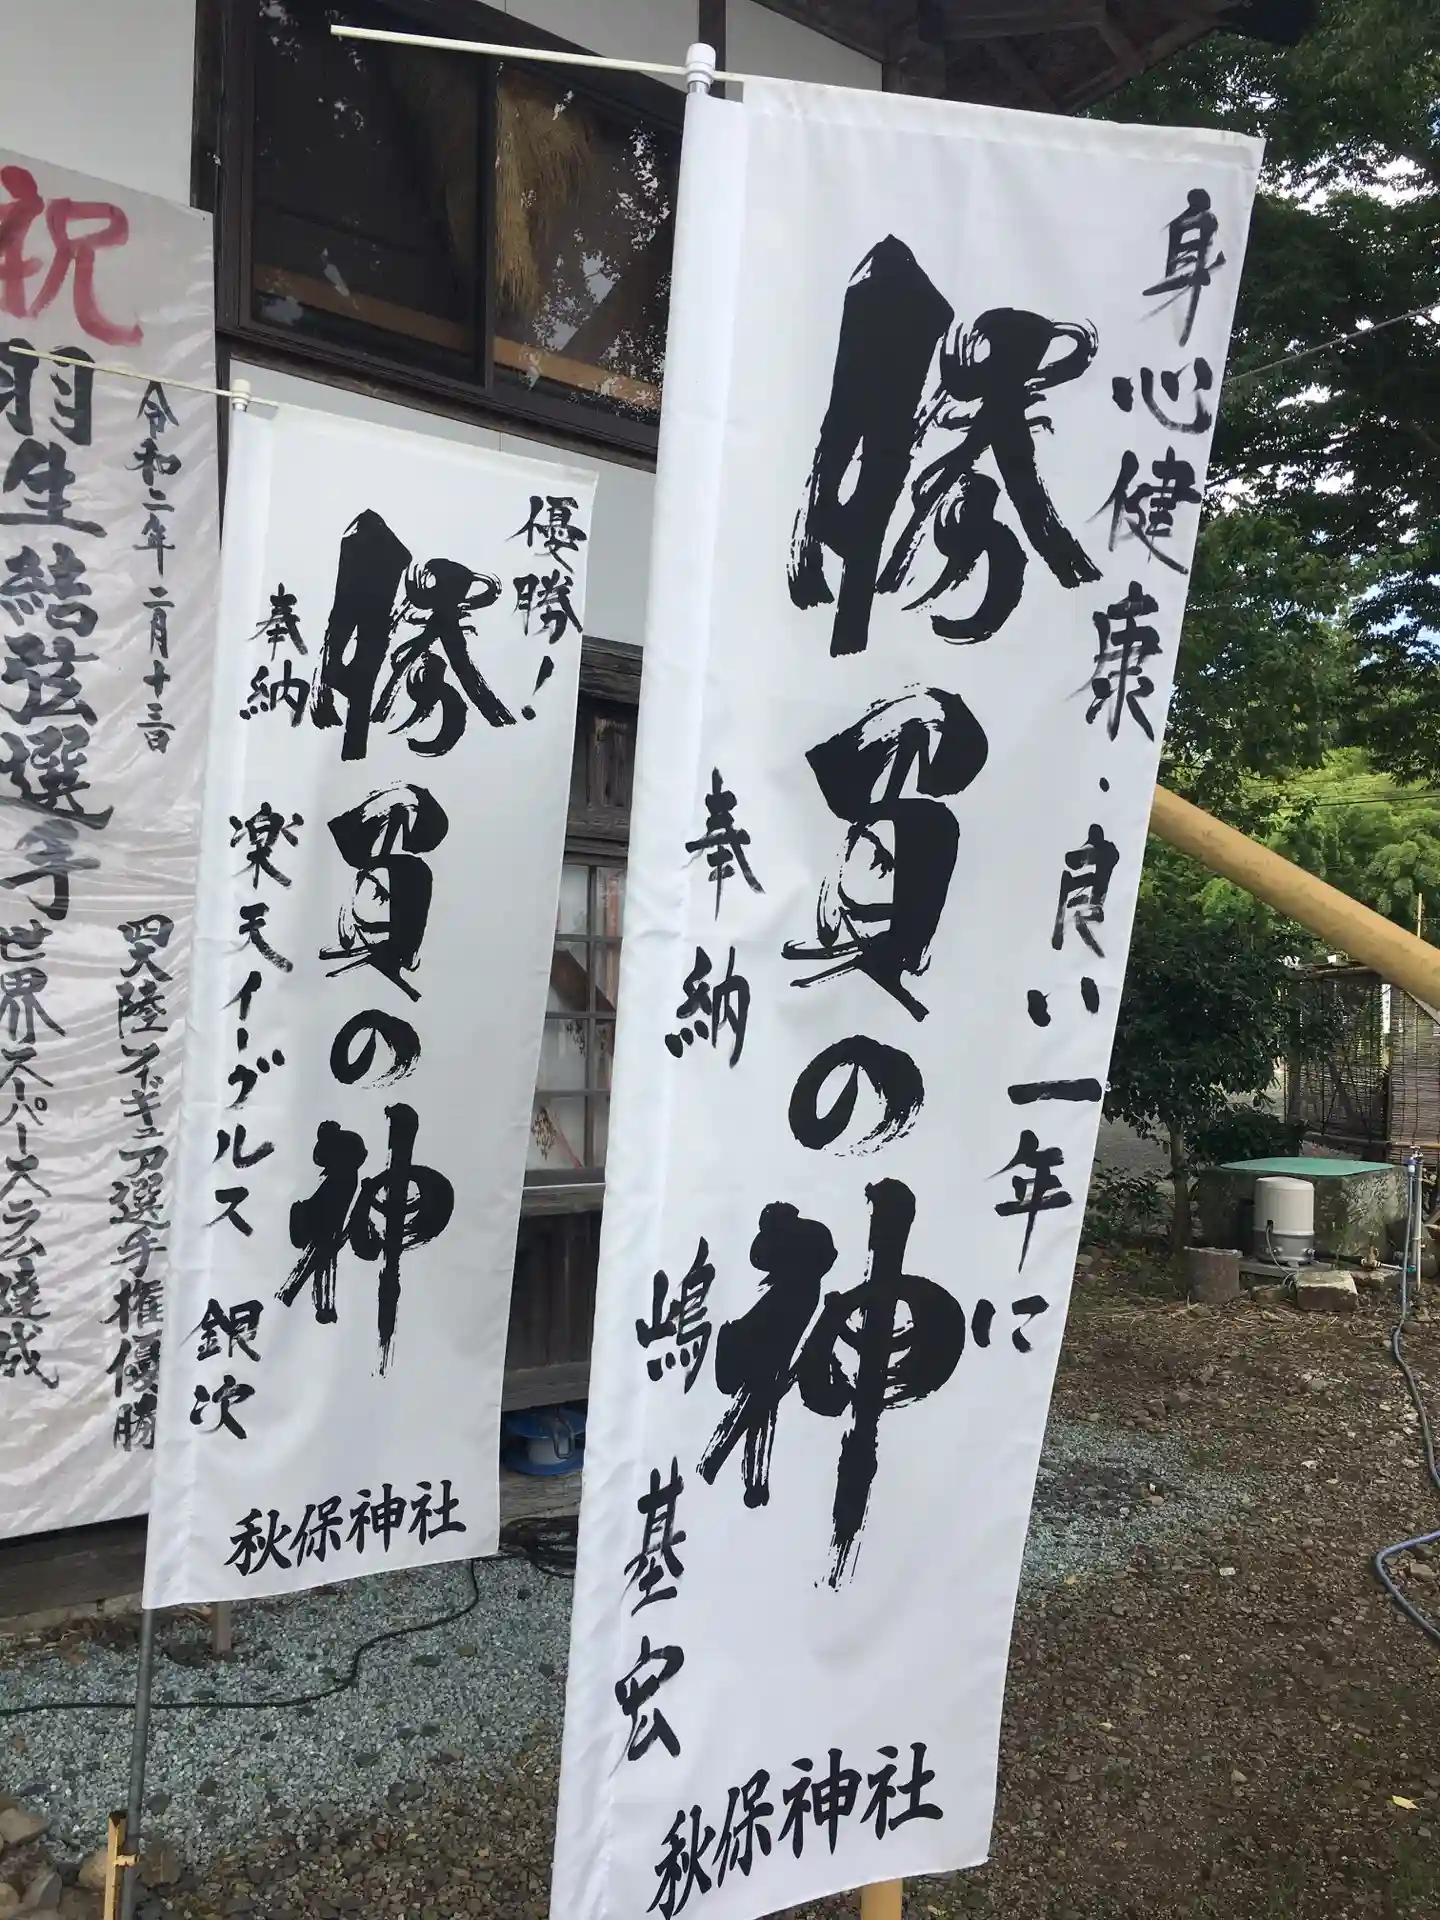 身心健康・良い一年に
勝負の神
奉納 嶋 基宏
秋保神社
優勝!
勝負の神
奉納 楽天イーグルス 銀次
秋保神社
祝
令和二年二月十三日
羽生結弦選手世界スーパースラム達成
四大陸フィギュア選手権優勝